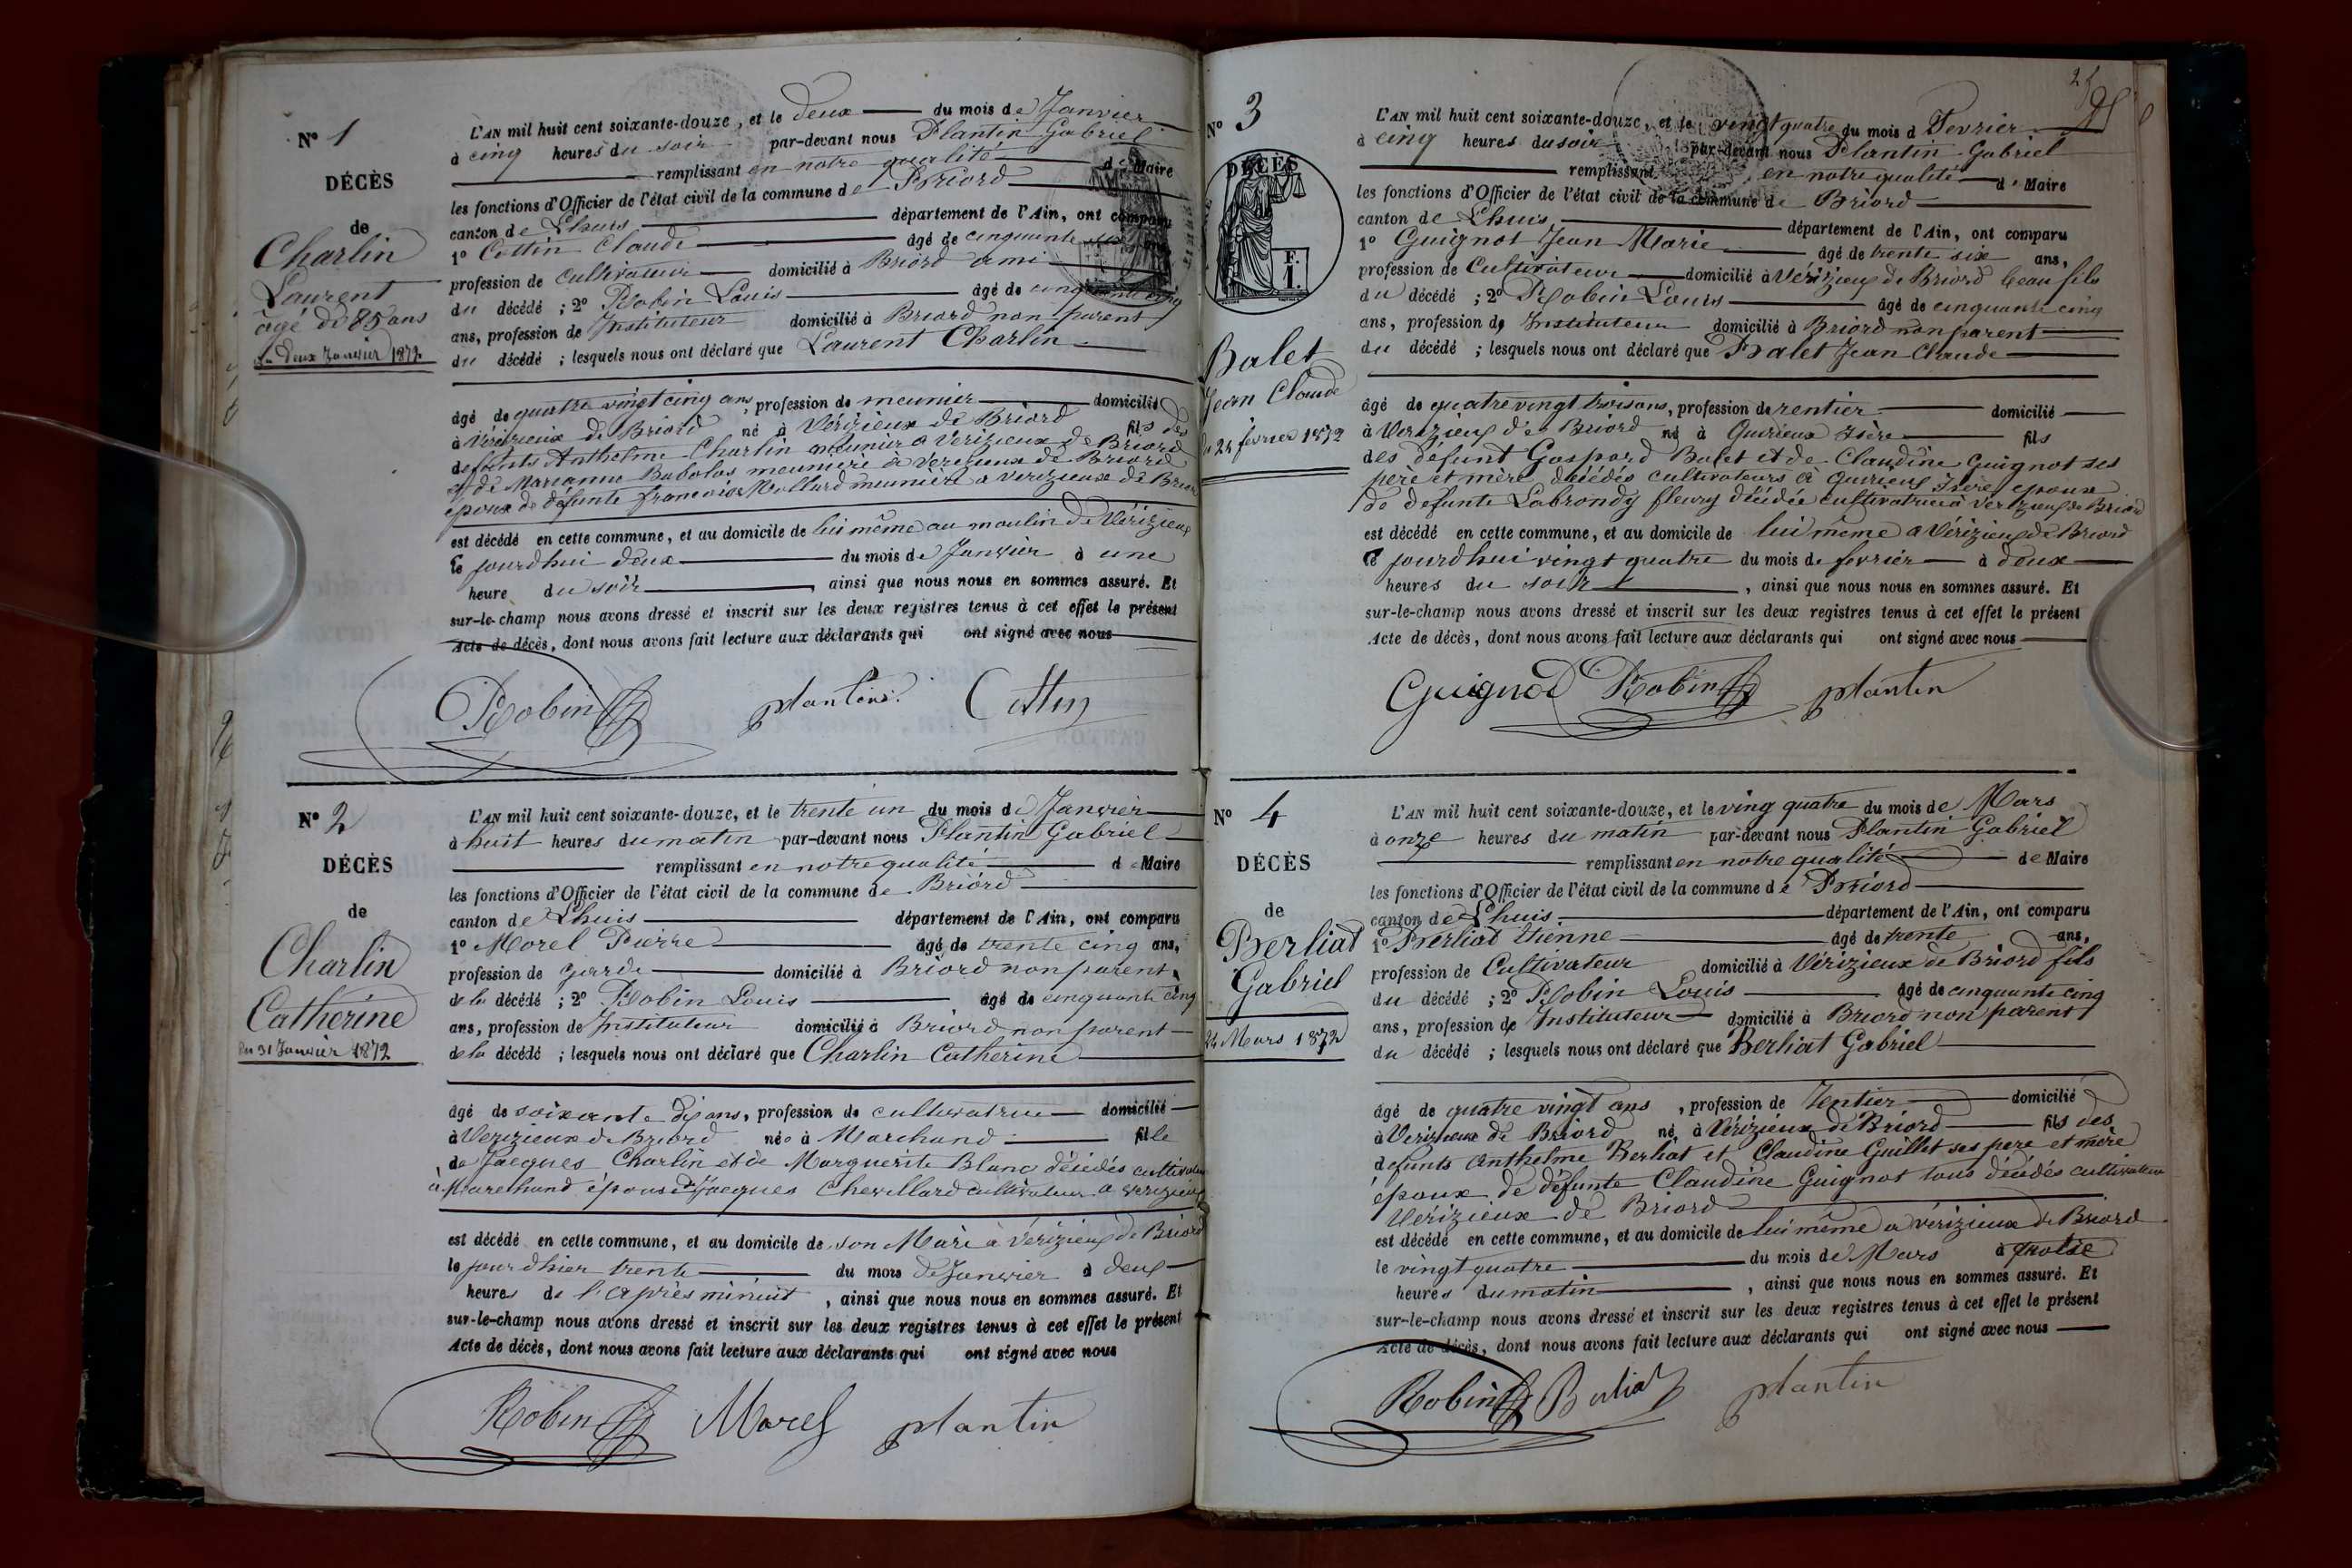 N° 1
DÉCÈS
de
Charlin
Laurent
âgé de 85 ans
du deux Janvier 1872
L'AN mil huit cent soixante-douze, et le deux du mois de Janvier
à cinq heures du soir par-devant nous Plantin Gabriel
remplissant en notre qualité de Maire
les fonctions d'Officier de l'état civil de la commune de Briord
canton de Lhuis département de l'Ain, ont comparu
1° Cottin Claude âgé de cinquante six ans,
profession de Cultivateur domicilié à Briord ami
du décédé ; 2° Robin Louis âgé de cinquante cinq
ans, profession de Instituteur domicilié à Briord non parent
du décédé ; lesquels nous ont déclaré que Laurent Charlin
âgé de quatre vingt cinq ans, profession de meunier domicilié
à Vérizieux de Briord né à Vérizieux de Briord fils des
defunts Anthelme Charlin meunier a Verizieux de Briord
et de Marianne Bubolas meunière à Verizieux de Briord
époux de défunte françoise Mollard meunière a verizieux de Briord
est décédé en cette commune, et au domicile de lui même au moulin de Vérizieux
le jourdhui deux du mois de Janvier à une
heure du soir , ainsi que nous nous en sommes assuré. Et
sur-le-champ nous avons dressé et inscrit sur les deux registres tenus à cet effet le présent
Acte de décès, dont nous avons fait lecture aux déclarants qui ont signé avec nous
Robin plantin Cottin
N° 2
DÉCÈS
de
Charlin
Catherine
Du 31 Janvier 1872
L'AN mil huit cent soixante-douze, et le trente un du mois de Janvier
à huit heures du matin par-devant nous Plantin Gabriel
remplissant en notre qualité de Maire
les fonctions d'Officier de l'état civil de la commune de Briord
canton de Lhuis département de l'Ain, ont comparu
1° Morel Pierre âgé de trente cinq ans,
profession de garde domicilié à Briord non parent
de la décédé ; 2° Robin Louis âgé de cinquante cinq
ans, profession de Instituteur domicilié à Briord non parent
de la décédé ; lesquels nous ont déclaré que Charlin Catherine
âgé de soixante dix ans, profession de cultivatrice domicilié
à Verizieux de Briord née à Marchand fille
de Jacques Charlin et de Marguerite Blanc décédés cultivateurs
à Marchand épouse de Jacques Chevillard cultivateur a verizieux
est décédé en cette commune, et au domicile de son Mari à Vérizieux de Briord
le jour dhier trente du mois de Janvier à deux
heures de l'après minuit , ainsi que nous nous en sommes assuré. Et
sur-le-champ nous avons dressé et inscrit sur les deux registres tenus à cet effet le présent
Acte de décès, dont nous avons fait lecture aux déclarants qui ont signé avec nous
Robin Morel plantin
N° 3
DÉCÈS
F.
1.
Balet
Jean Claude
le 24 février 1872
L'AN mil huit cent soixante-douze, et le vingt quatre du mois d Fevrier
à cinq heures du soir par-devant nous Plantin Gabriel
remplissant en notre qualité de Maire
les fonctions d'Officier de l'état civil de la commune de Briord
canton de Lhuis département de l'Ain, ont comparu
1° Guignot Jean Marie âgé de trente six ans,
profession de Cultivateur domicilié à Verizieux de Briord beau fils
du décédé ; 2° Robin Louis âgé de cinquante cinq
ans, profession de Instituteur domicilié à Briord non parent
du décédé ; lesquels nous ont déclaré que Balet Jean Claude
âgé de quatre vingt trois ans, profession de rentier domicilié
à Verizieux de Briord né à Quirieux Isère fils
des défunt Gaspard Balet et de Claudine Guignot ses
père et mère décédés cultivateurs à Quirieux Isère epoux
de defunte Labrondy fleury décédée cultivatrice à Verizieux de Briord
est décédé en cette commune, et au domicile de lui même a Vérizieux de Briord
le jourdhui vingt quatre du mois de fevrier à deux
heures du soir , ainsi que nous nous en sommes assuré. Et
sur-le-champ nous avons dressé et inscrit sur les deux registres tenus à cet effet le présent
Acte de décès, dont nous avons fait lecture aux déclarants qui ont signé avec nous
Guignot Robin plantin
N° 4
DÉCÈS
de
Berliat
Gabriel
24 Mars 1872
L'AN mil huit cent soixante-douze, et le ving quatre du mois de Mars
à onze heures du matin par-devant nous Plantin Gabriel
remplissant en notre qualité de Maire
les fonctions d'Officier de l'état civil de la commune de Briord
canton de Lhuis département de l'Ain, ont comparu
1° Berliat Etienne âgé de trente ans,
profession de Cultivateur domicilié à Vérizieux de Briord fils
du décédé ; 2° Robin Louis âgé de cinquante cinq
ans, profession de Instituteur domicilié à Briord non parent
du décédé ; lesquels nous ont déclaré que Berliat Gabriel
âgé de quatre vingt ans , profession de rentier domicilié
à Verizieux de Briord né à Vérizieux de Briord fils des
defunts Anthelme Berliat et Claudine Guillet ses pere et mère
époux de défunte Claudine Guignot tous décédés cultivateurs
Vérizieux de Briord
est décédé en cette commune, et au domicile de lui même a vérizieux de Briord
le vingt quatre du mois de Mars à
heures du matin , ainsi que nous nous en sommes assuré. Et
sur-le-champ nous avons dressé et inscrit sur les deux registres tenus à cet effet le présent
Acte de décès, dont nous avons fait lecture aux déclarants qui ont signé avec nous
Robin Berliat plantin